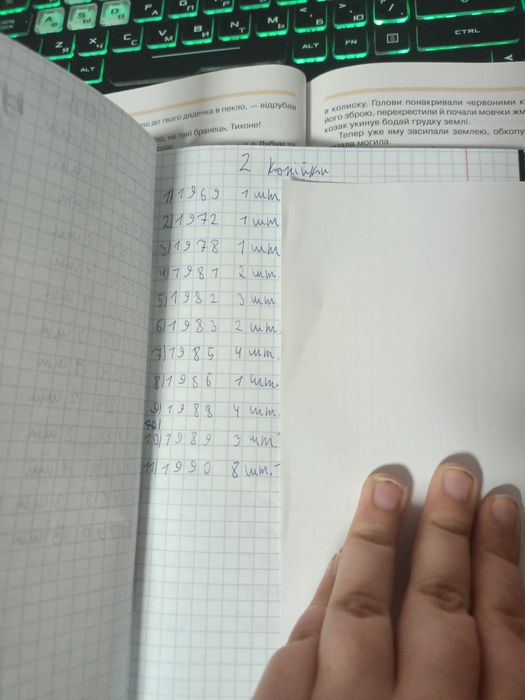 ALT
FN
CTRL
ALT
до твого дядечка в пекло, — відрубав
не твій бранець, Тихоне!
в колиску. Голови понакривали червоними
його зброю, перехрестили й почали мовчки
козак укинув бодай грудку землі.
Тепер уже яму засипали землею,
могила.
2 копійки
1) 1969 1 шт
2) 1972 1 шт
3) 1978 1 шт
4) 1981 2 шт.
5) 1982 3 шт.
6) 1983 2 шт.
7) 1985 4 шт.
8) 1986 1 шт.
9) 1988 4 шт.
10) 1989 3 шт
11) 1990 8 шт.